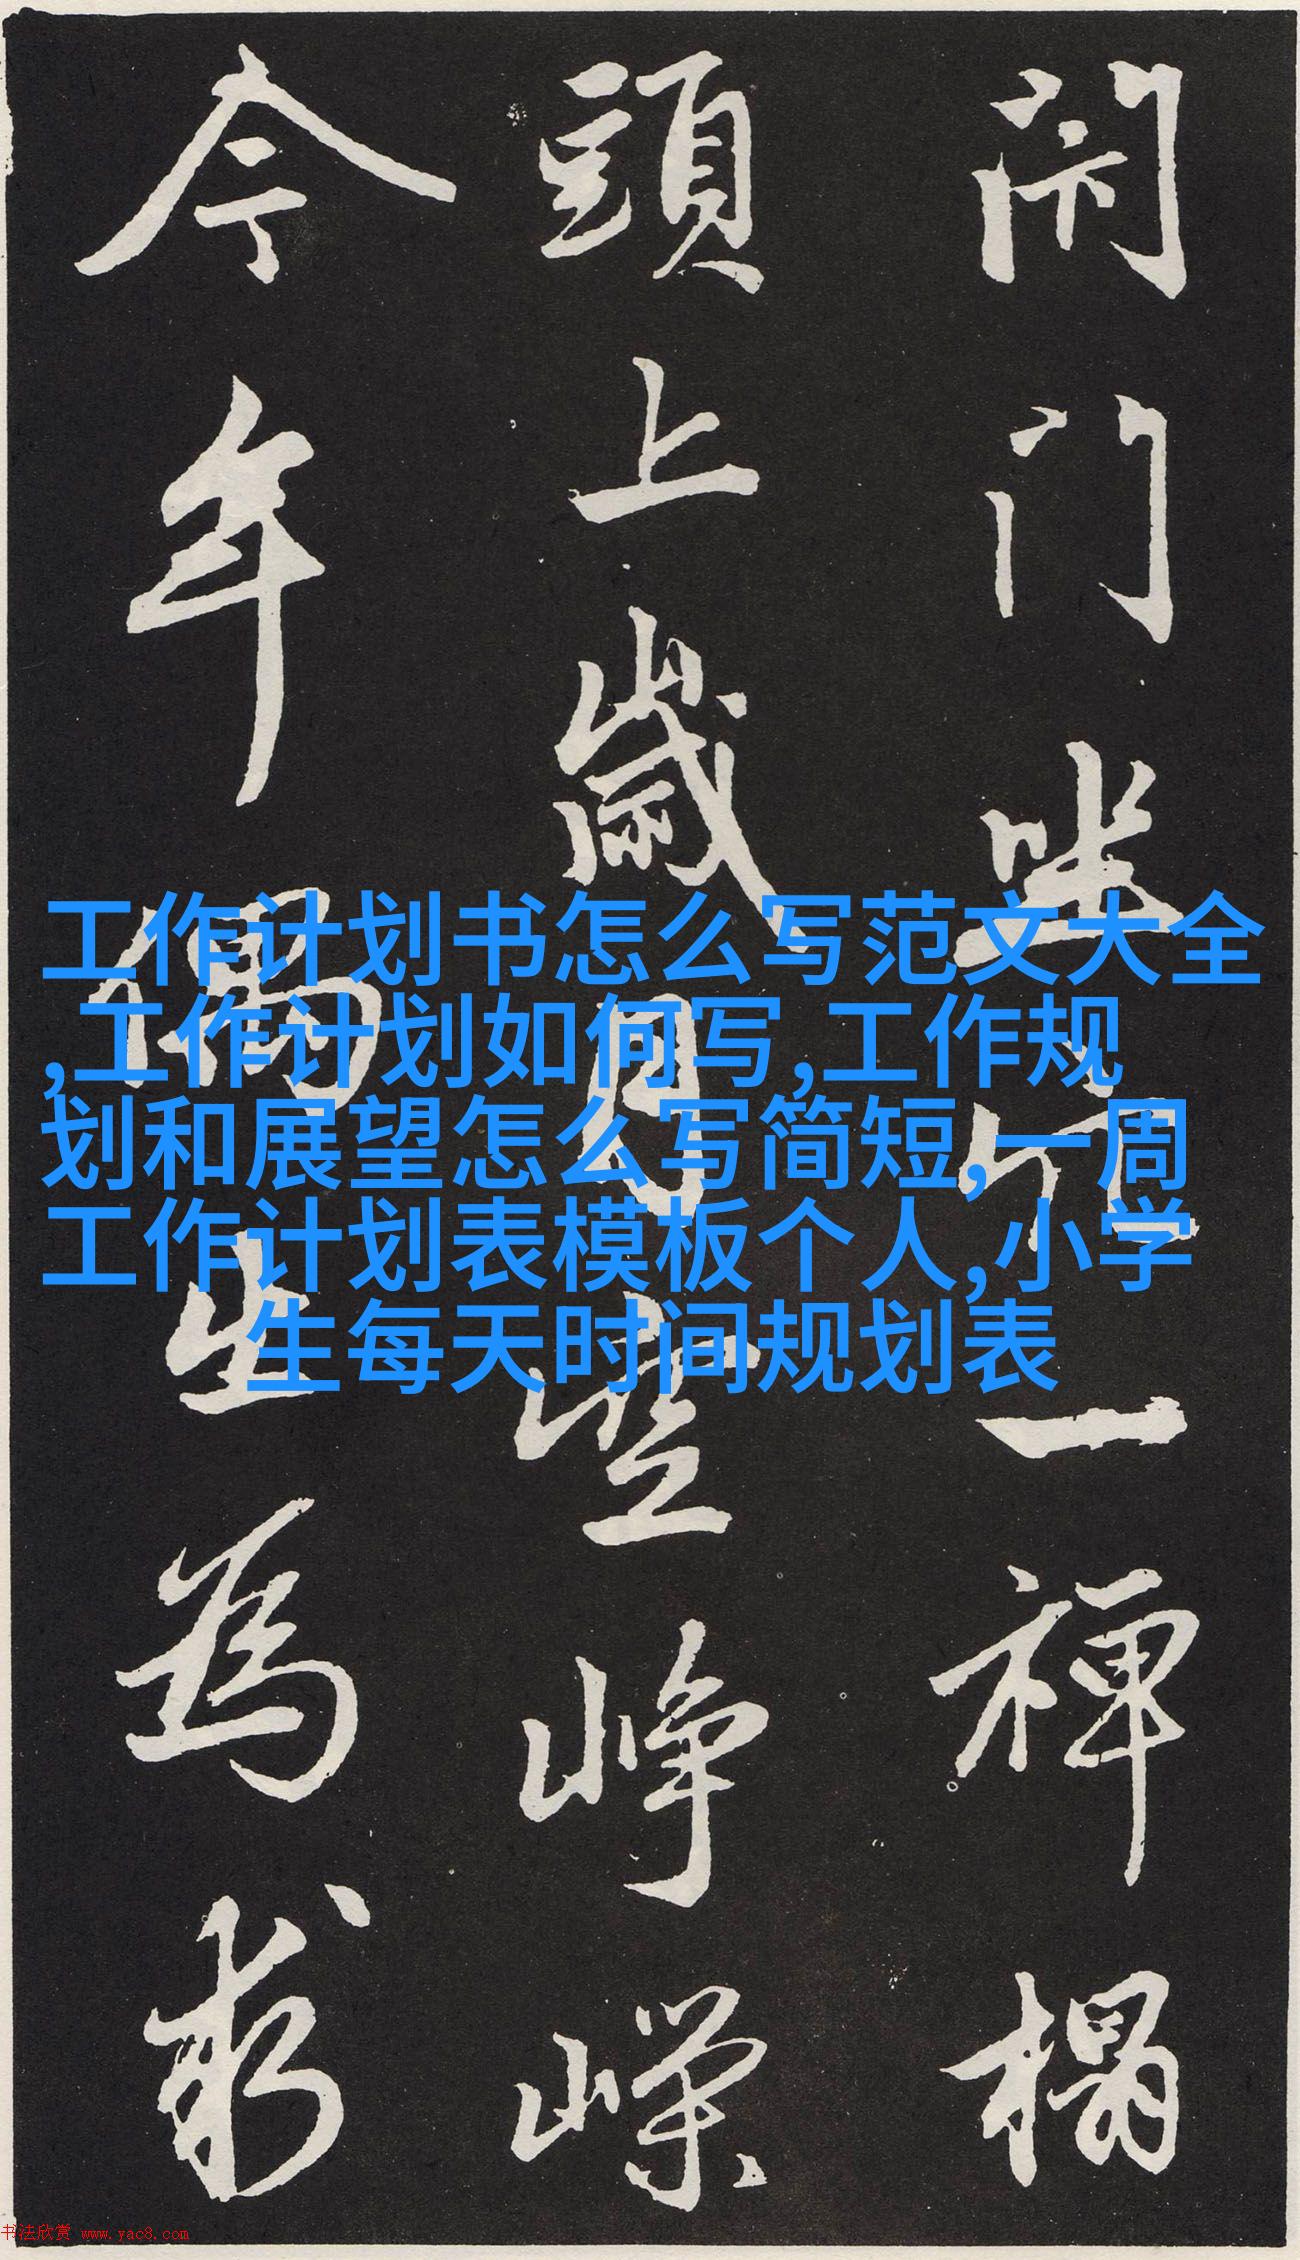 閇门坐穴一禅榻
頭上歲月空峥嶸
今年偶出為求
工作计划书怎么写范文大全
,工作计划如何写,工作规
划和展望怎么写简短,一周
工作计划表模板个人,小学
生每天时间规划表
书法欣赏 www.yac8.com